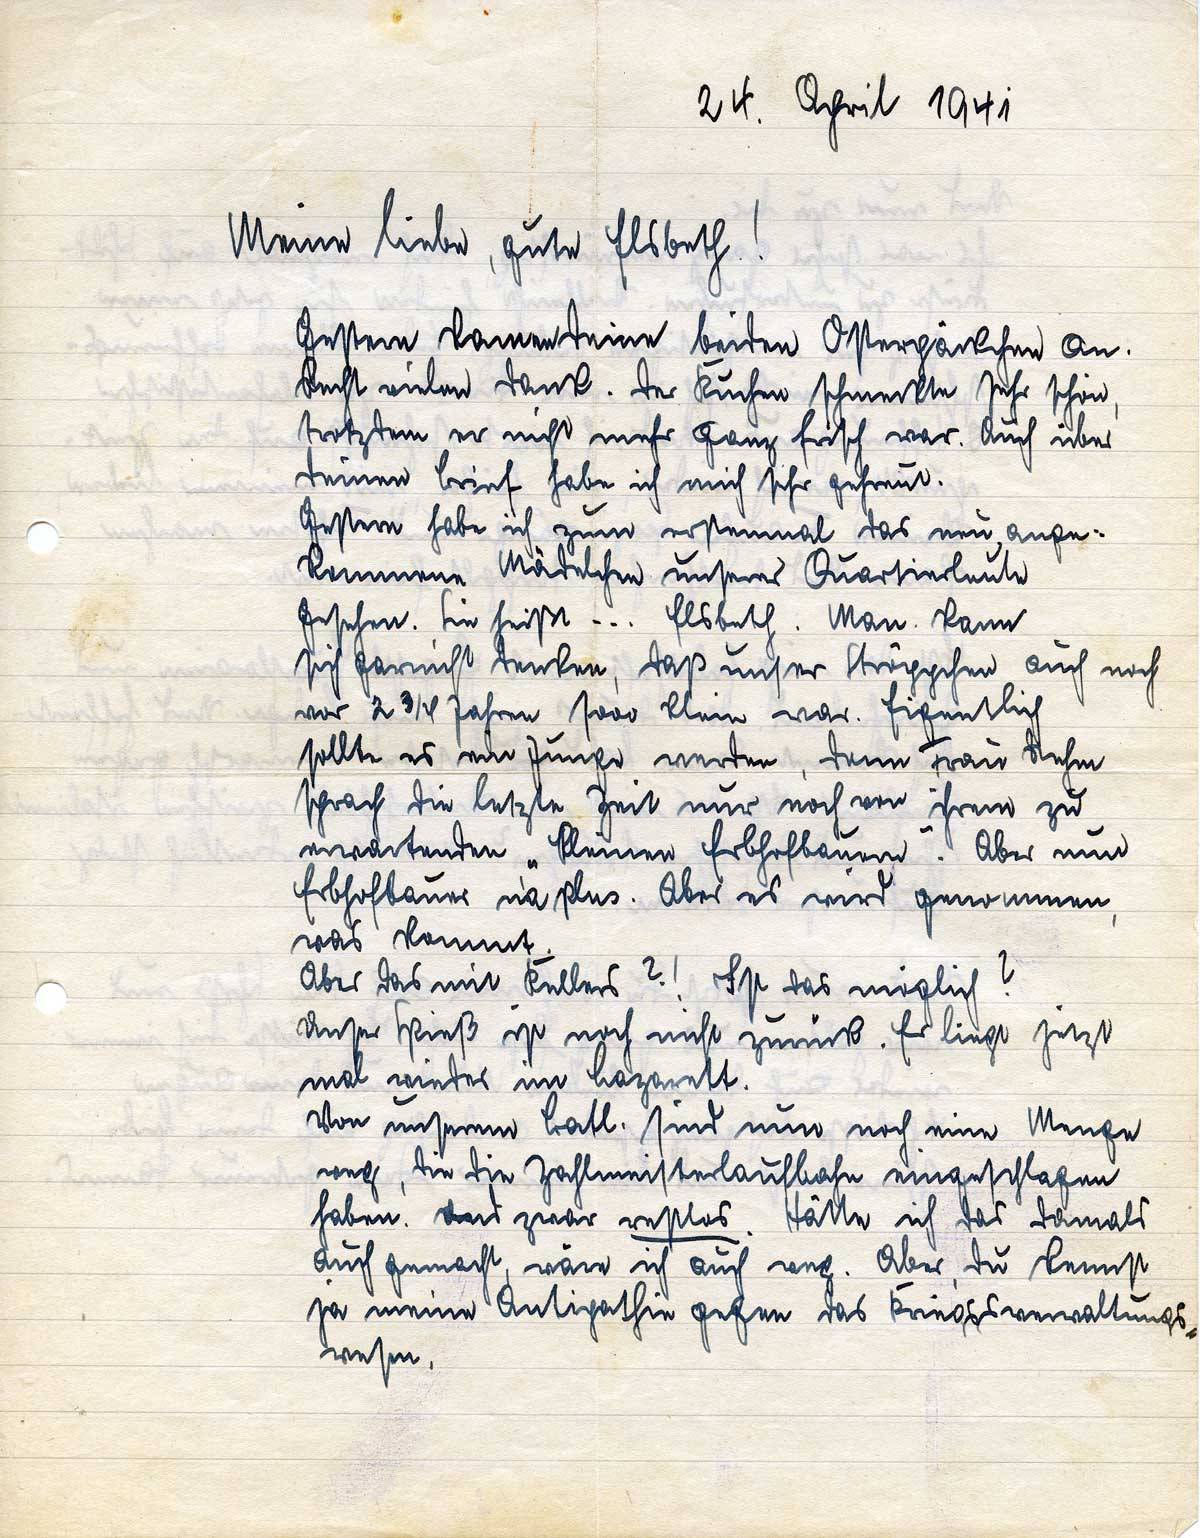 24. April 1941
Meine liebe, gute Elsbeth!
Gestern kamen Deine beiden Osterpäckchen an.
Recht vielen Dank. Der Kuchen schmeckte sehr schön,
trotzdem er nicht mehr ganz frisch war. Auch über
Deinen Brief habe ich mich sehr gefreut.
Gestern habe ich zum erstenmal das neu ange-
kommene Mädelchen unserer Quartierleute
gesehen. Sie heißt --- Elsbeth. Man kann
sich garnicht denken, daß unser Ströppchen auch noch
vor 2 3/4 Jahren sooo klein war. Eigentlich
sollte es ein Junge werden, denn Frau
sprach die letzte Zeit nur noch von ihrem zu
erwartenden „kleinen Erbhofbauern". Aber nun
Erbhofbauer Aber es wird genommen,
was kommt.
Aber das mit Kellers?! Ist das möglich?
Unser Spieß ist noch nicht zurück. Er liegt jetzt
mal wieder im Lazarett.
Von unserem Batl. sind nun noch eine Menge
weg, die die Zahlmeisterlaufbahn eingeschlagen
haben. Und zwar restlos. Hätte ich das damals
auch gemacht, wäre ich auch weg. Aber, Du kennst
ja meine Antipathie gegen das Kriegsverwaltungs-
wesen.